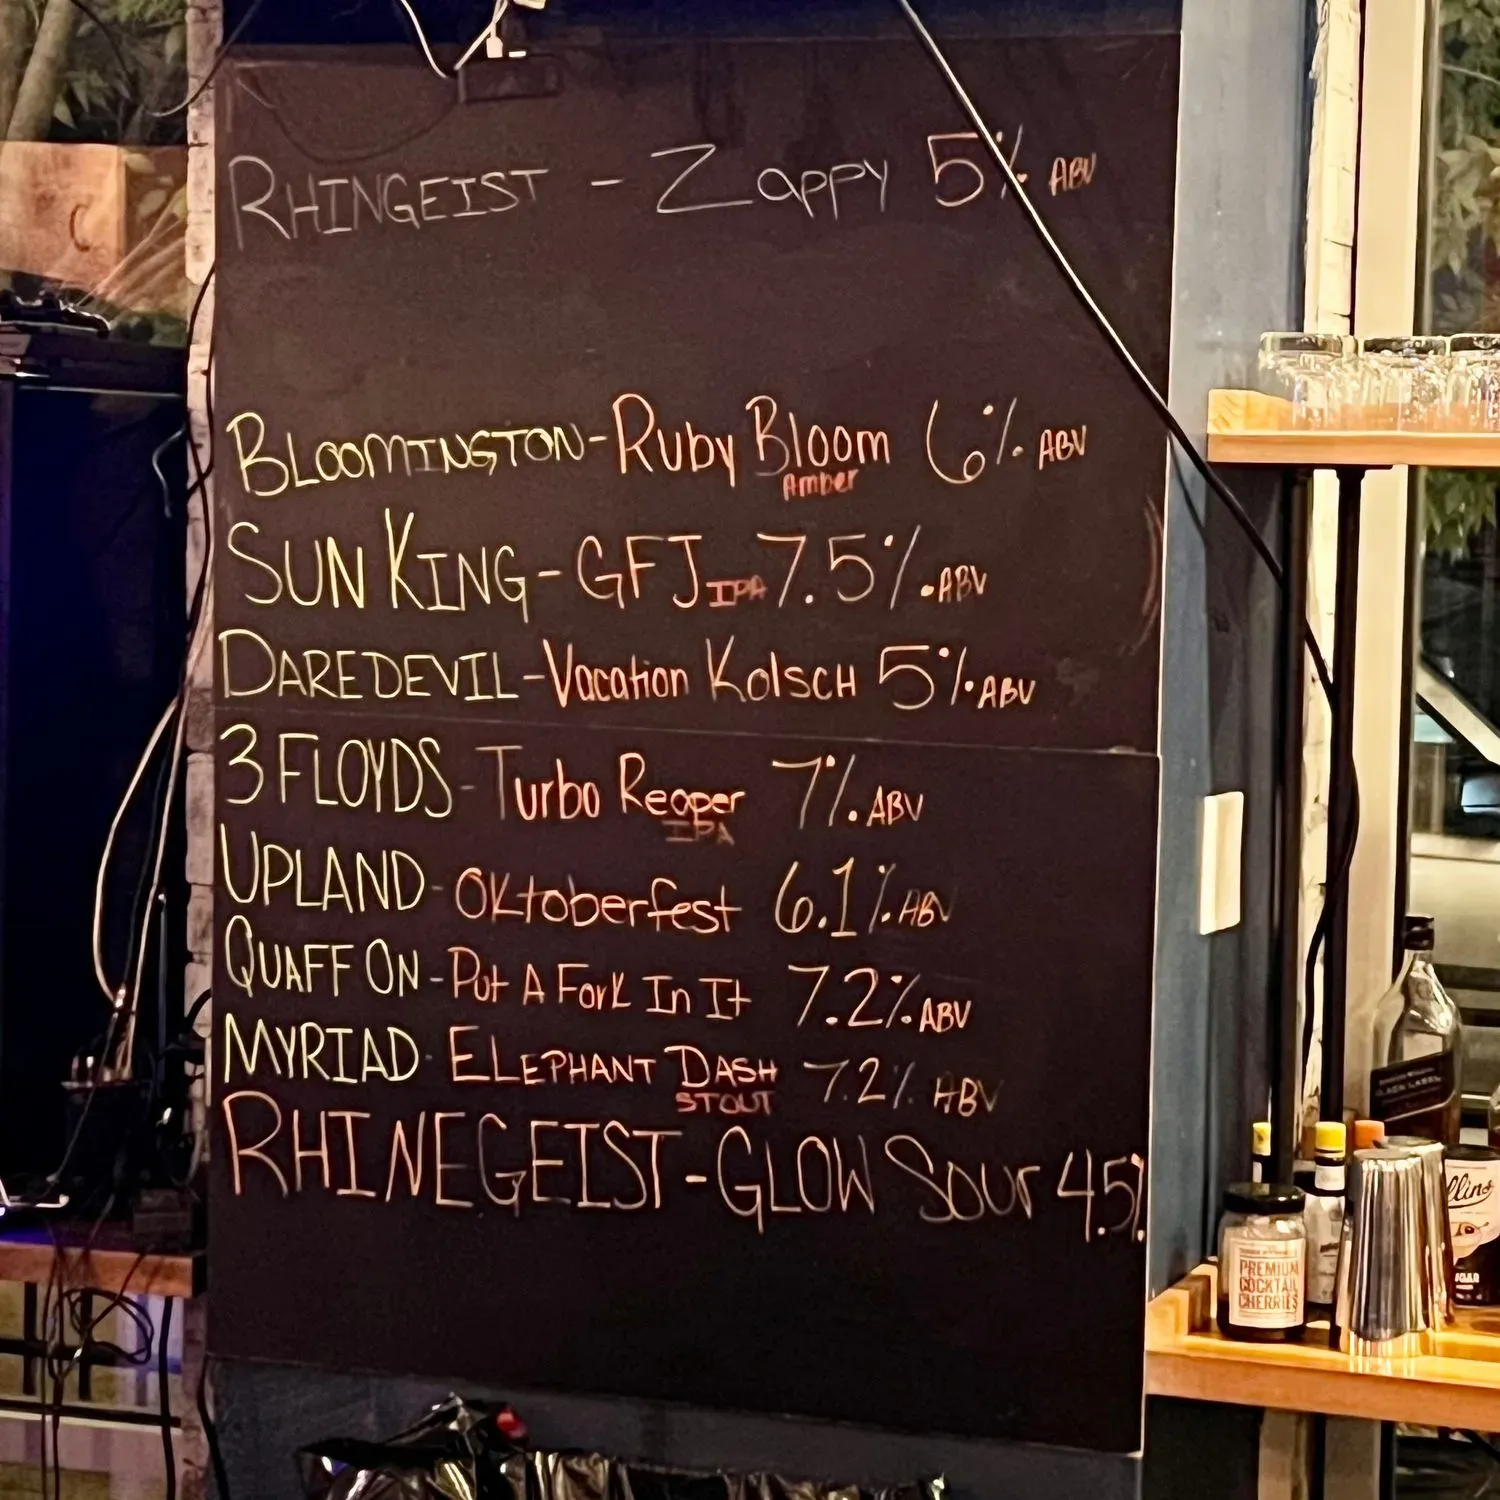 RHINGEIST - Zappy 5% ABV
BLOOMINGTON - Ruby Bloom 6% ABV
Amber
SUN KING - GFJ IPA 7.5% ABV
DAREDEVIL - Vacation KolscH 5% ABV
3 FLOYDS - Turbo Reaper 7% ABV
IPA
UPLAND - Oktoberfest 6.1% ABV
QUAFF ON - Put A Fork In It 7.2% ABV
MYRIAD - ELEPHANT DASH 7.2% ABV
STOUT
RHINEGEIST - GLOW Sour 4.5%
PREMIUM
COCKTAIL
CHERRIES